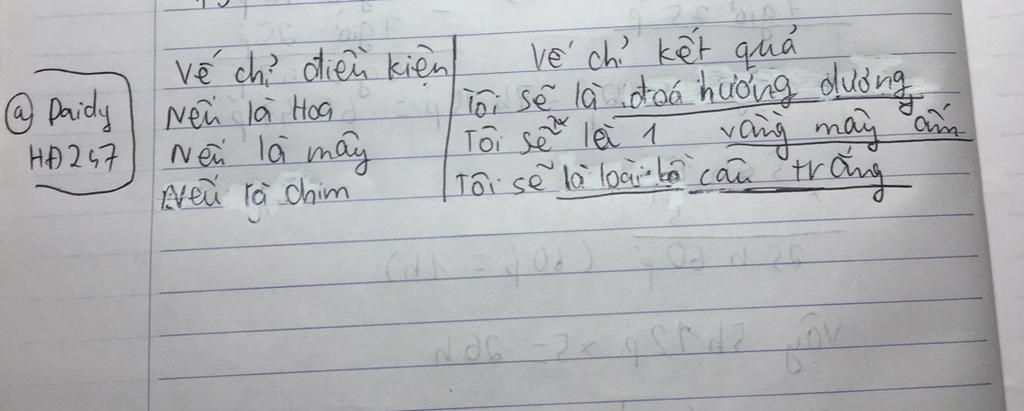 @ Daidy
HĐ247
Vế chỉ điều kiện
Vế chỉ kết quả
Nếu là Hoa
Tôi sẽ là đoá hướng dương
Nếu là mây
Tôi sẽ là 1 vầng mây ấm
Nếu là chim
Tôi sẽ là loài bồ câu trắng